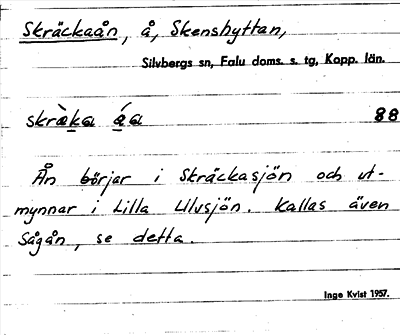 Skräckaån, å, Skenshyttan,
Silvbergs sn, Falu doms. s. tg, Kopp. län.
skræ̀ka á̤a 88
Ån börjar i Skräckasjön och ut-
mynnar i Lilla Ulvsjön. Kallas även
Sågån, se detta.
Inge Kvist 1957.